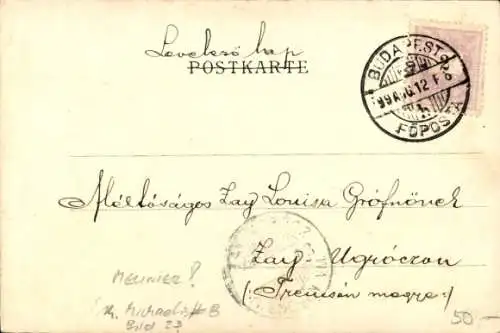 Levelező lap
POSTKARTE
BUDAPEST
99 AUG. 12 F
FŐPOSTA
Méltóságos Zay Louisa Grófnőnek
Zay-Ugróczon
(: Trencsén megye :)
MEUNIER?
Michaelis # B
Bild 23
50